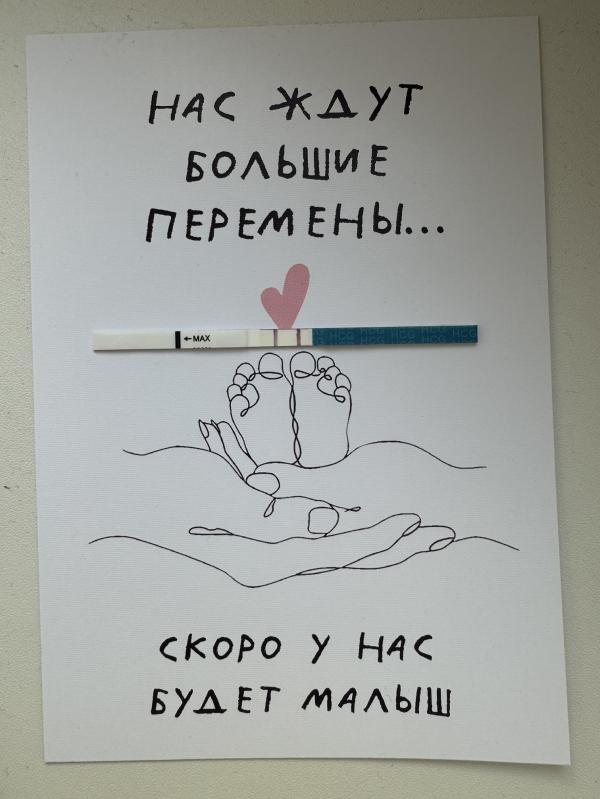 НАС ЖДУТ
БОЛЬШИЕ
ПЕРЕМЕНЫ...
←MAX
HCG HCG HCG HCG HCG HCG
СКОРО У НАС
БУДЕТ МАЛЫШ